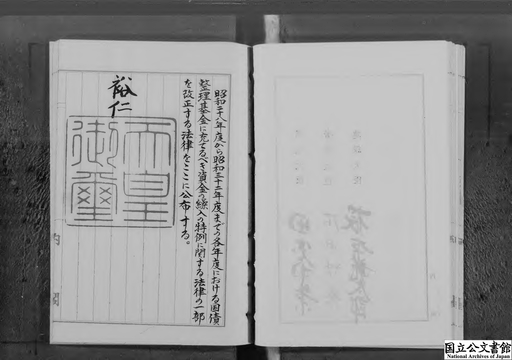 昭和二十八年度から昭和三十二年度までの各年度における国債
整理基金に充てるべき資金の繰入の特例に関する法律の一部
を改正する法律をここに公布する。
裕仁
天皇
御璽
内閣
国立公文書館
National Archives of Japan